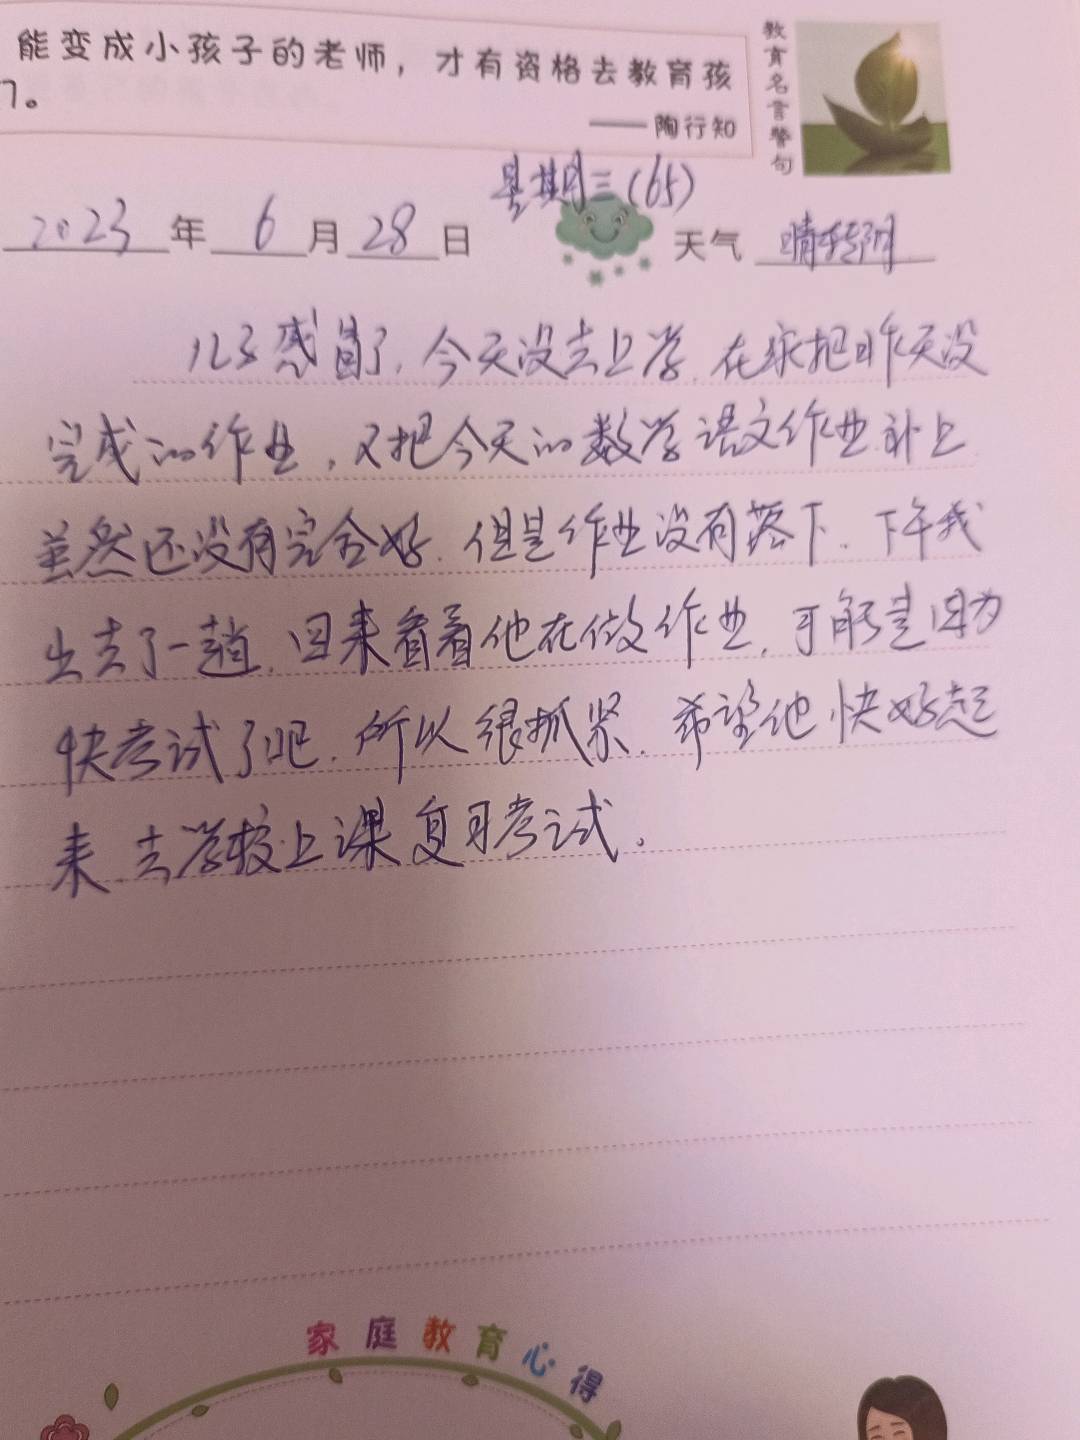 能变成小孩子的老师，才有资格去教育孩
。
——陶行知
教育名言警句
星期三(65)
2023年6月28日 天气 晴转阴
儿子感冒了，今天没去上学，在家把昨天没
完成的作业，又把今天的数学语文作业补上
虽然还没有完全好，但是作业没有落下．下午我
出去了一趟，回来看着他在做作业，可能是因为
快考试了吧，所以很抓紧．希望他快好起
来．去学校上课复习考试。
家庭教育心得